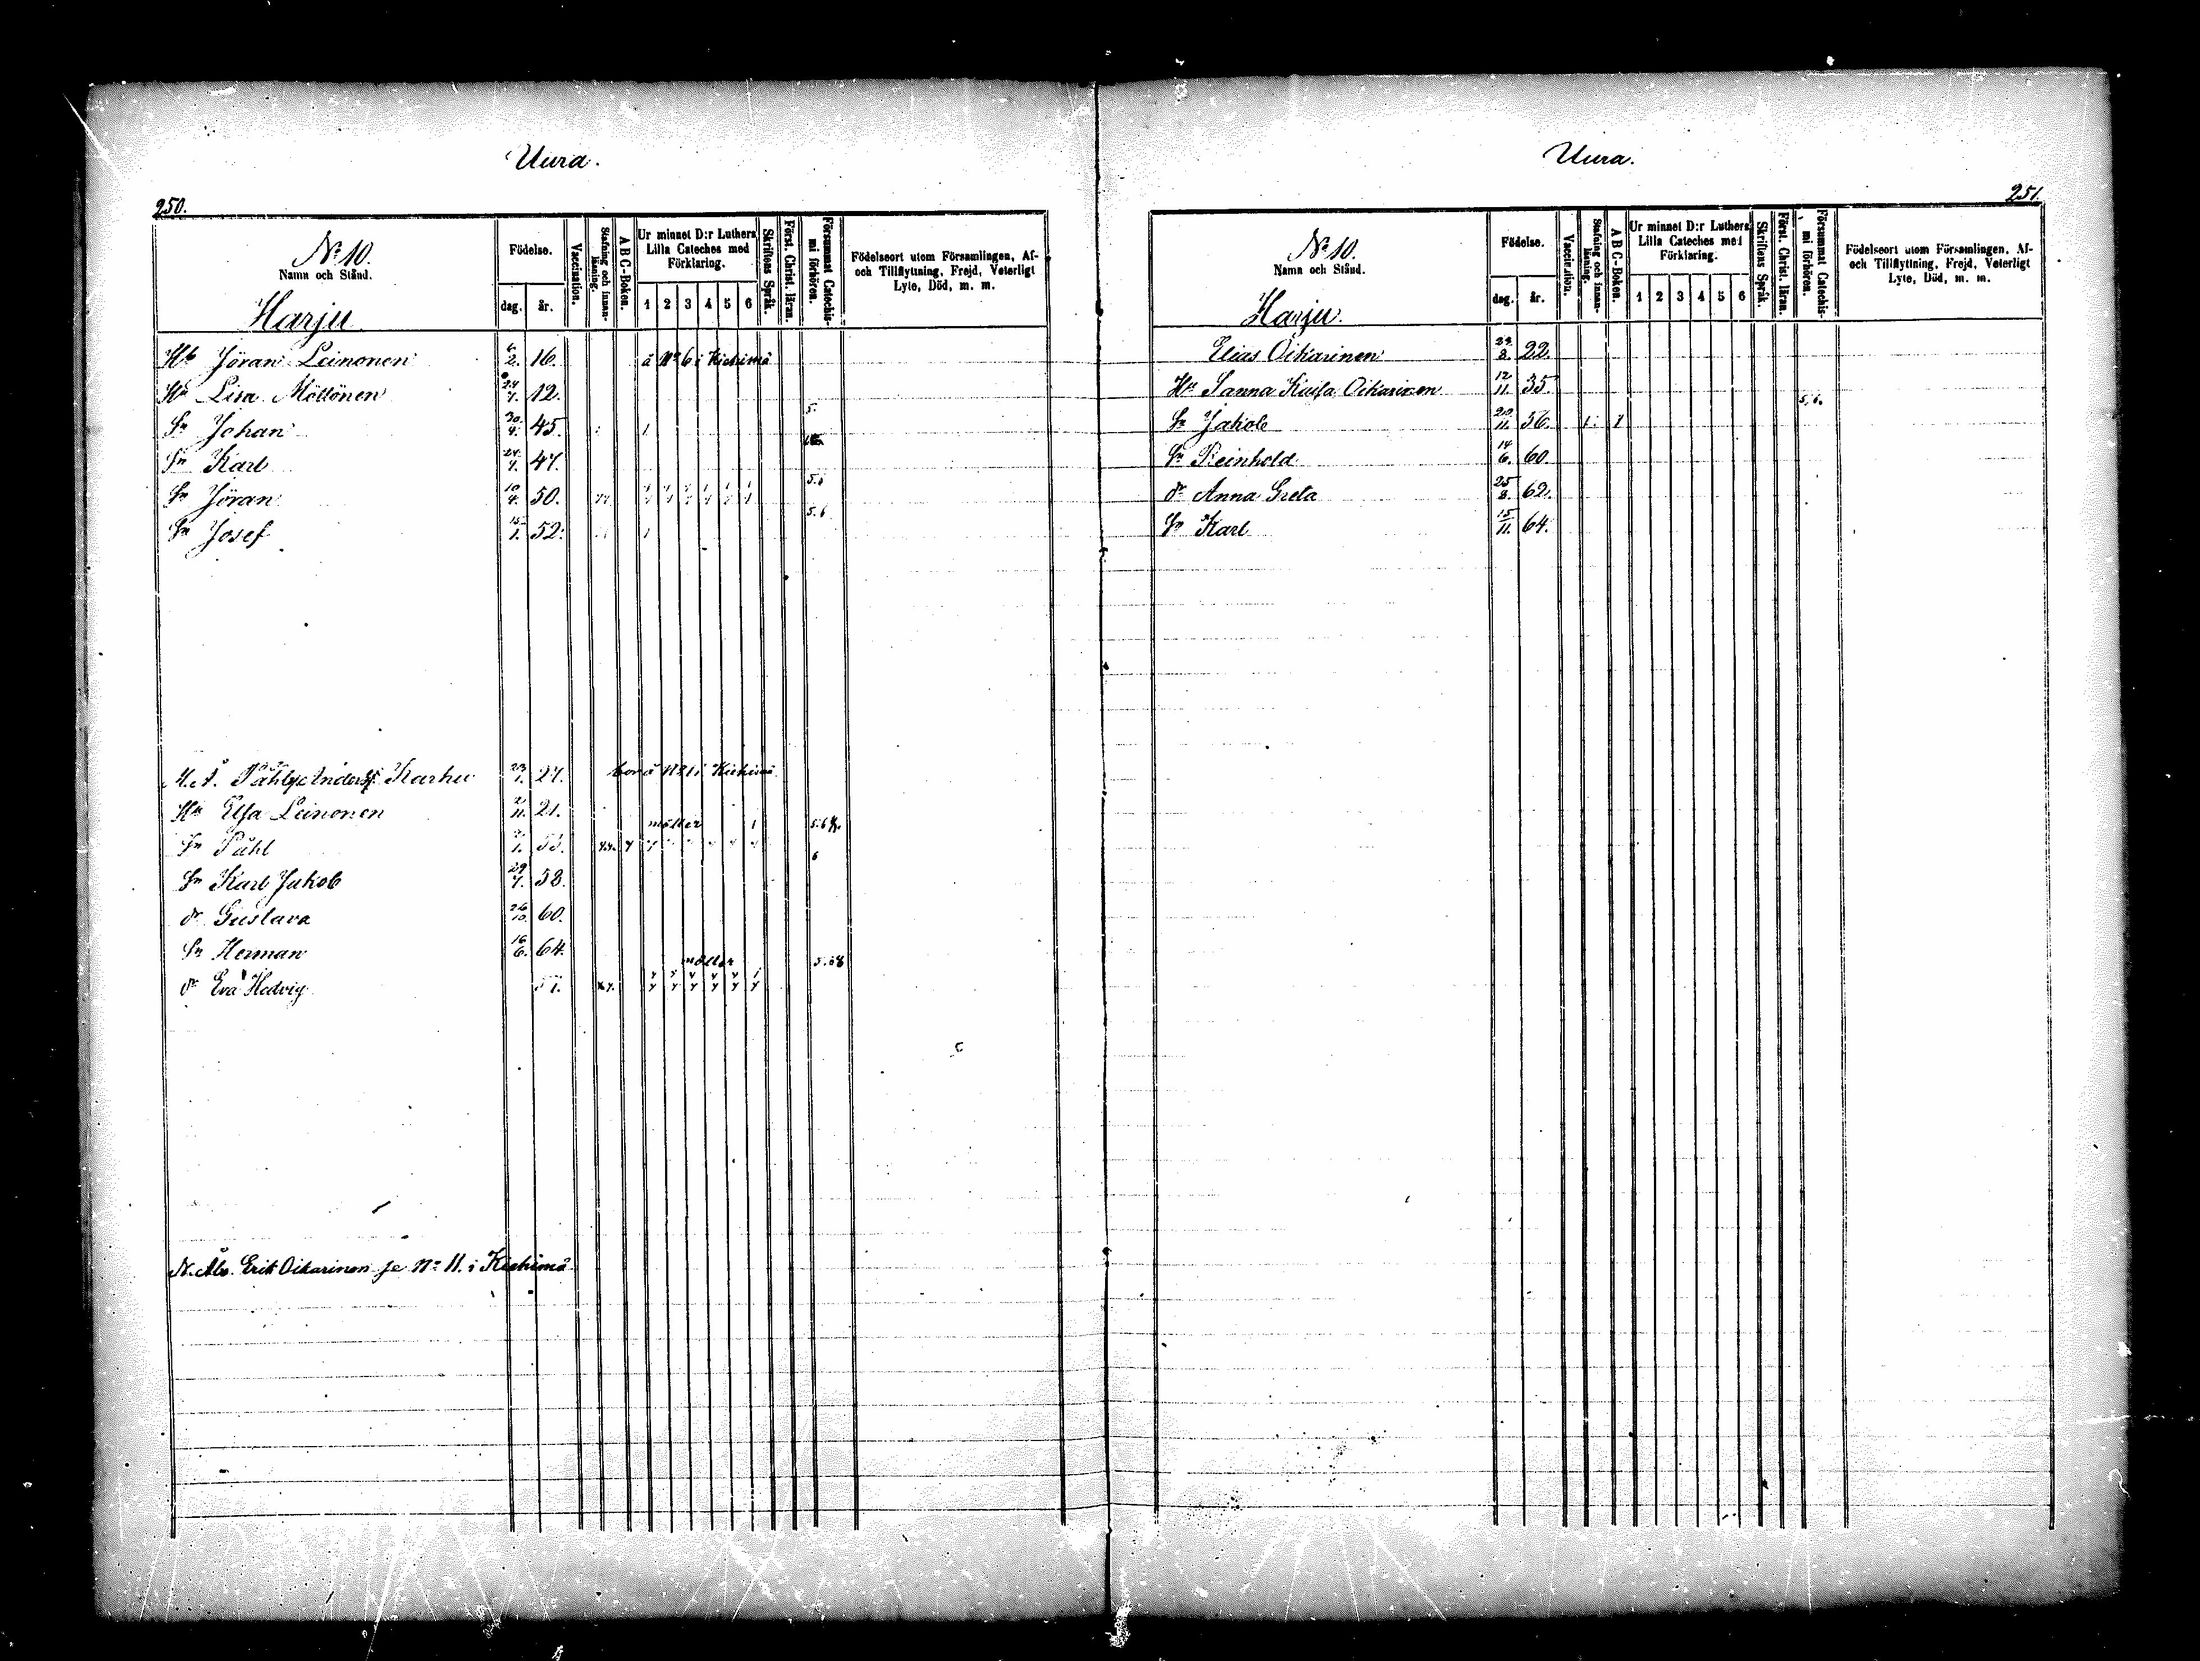 Uura.
250.
No 10.
Namn och Stånd.
Harju
Födelse.
dag.
år.
Vaccination.
Stafning och innanläsning.
A B C-Boken.
Ur minnet D:r Luthers Lilla Cateches med Förklaring.
1 2 3 4 5 6
Skriftens Språk.
Först. Christ. läran.
Försummat Catechismi förhören.
Födelseort utom Församlingen, Af- och Tillflyttning, Frejd, Veterligt Lyte, Död, m. m.
Hb Jöran Leinonen 6/2. 16. å No 6 i Kiehimä
Hu Lisa Möttönen 24/7. 12.
Sn Johan 30/4. 45. 1 5.
Sn Karl 24/7. 47.
Sn Jöran 10/4. 50. 5.6
Sn Josef 15/1. 52. 1 5.6
Påhl Anderss. Karhu 23/1. 27. bor å No 1 i Kiehimä
Hu Ulla Leinonen 2/11. 21.
Sn Påhl 2/1. 53. möller 5.6
Sn Karl Jakob 29/7. 58. 6
dr Gustava 26/10. 60.
Sn Herman 16/6. 64.
dr Eva Hedvig 57. möller 5.6
Erik Oikarinen se No 11. i Kiehimä
Uura.
251.
No 10.
Namn och Stånd.
Harju.
Födelse.
dag.
år.
Vaccination.
Stafning och innanläsning.
A B C-Boken.
Ur minnet D:r Luthers Lilla Cateches med Förklaring.
1 2 3 4 5 6
Skriftens Språk.
Först. Christ. läran.
Försummat Catechismi förhören.
Födelseort utom Församlingen, Af- och Tillflyttning, Frejd, Veterligt Lyte, Död, m. m.
Elias Oikarinen 22.
Hu Sanna Kaisa Oikarinen 12/11. 35.
Sn Jakob 20/11. 56. 5.6.
Sn Reinhold 14/6. 60.
dr Anna Greta 25/8. 62.
Sn Karl 15/11. 64.